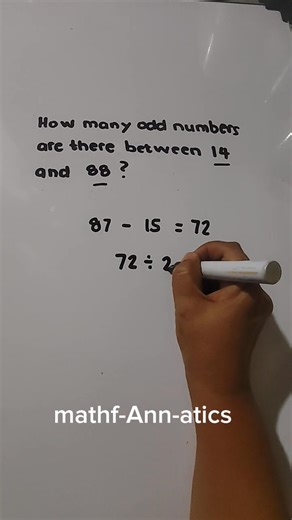 How many odd numbers
are there between 14
and 88?
87 - 15 = 72
72 ÷ 2
mathf-Ann-atics